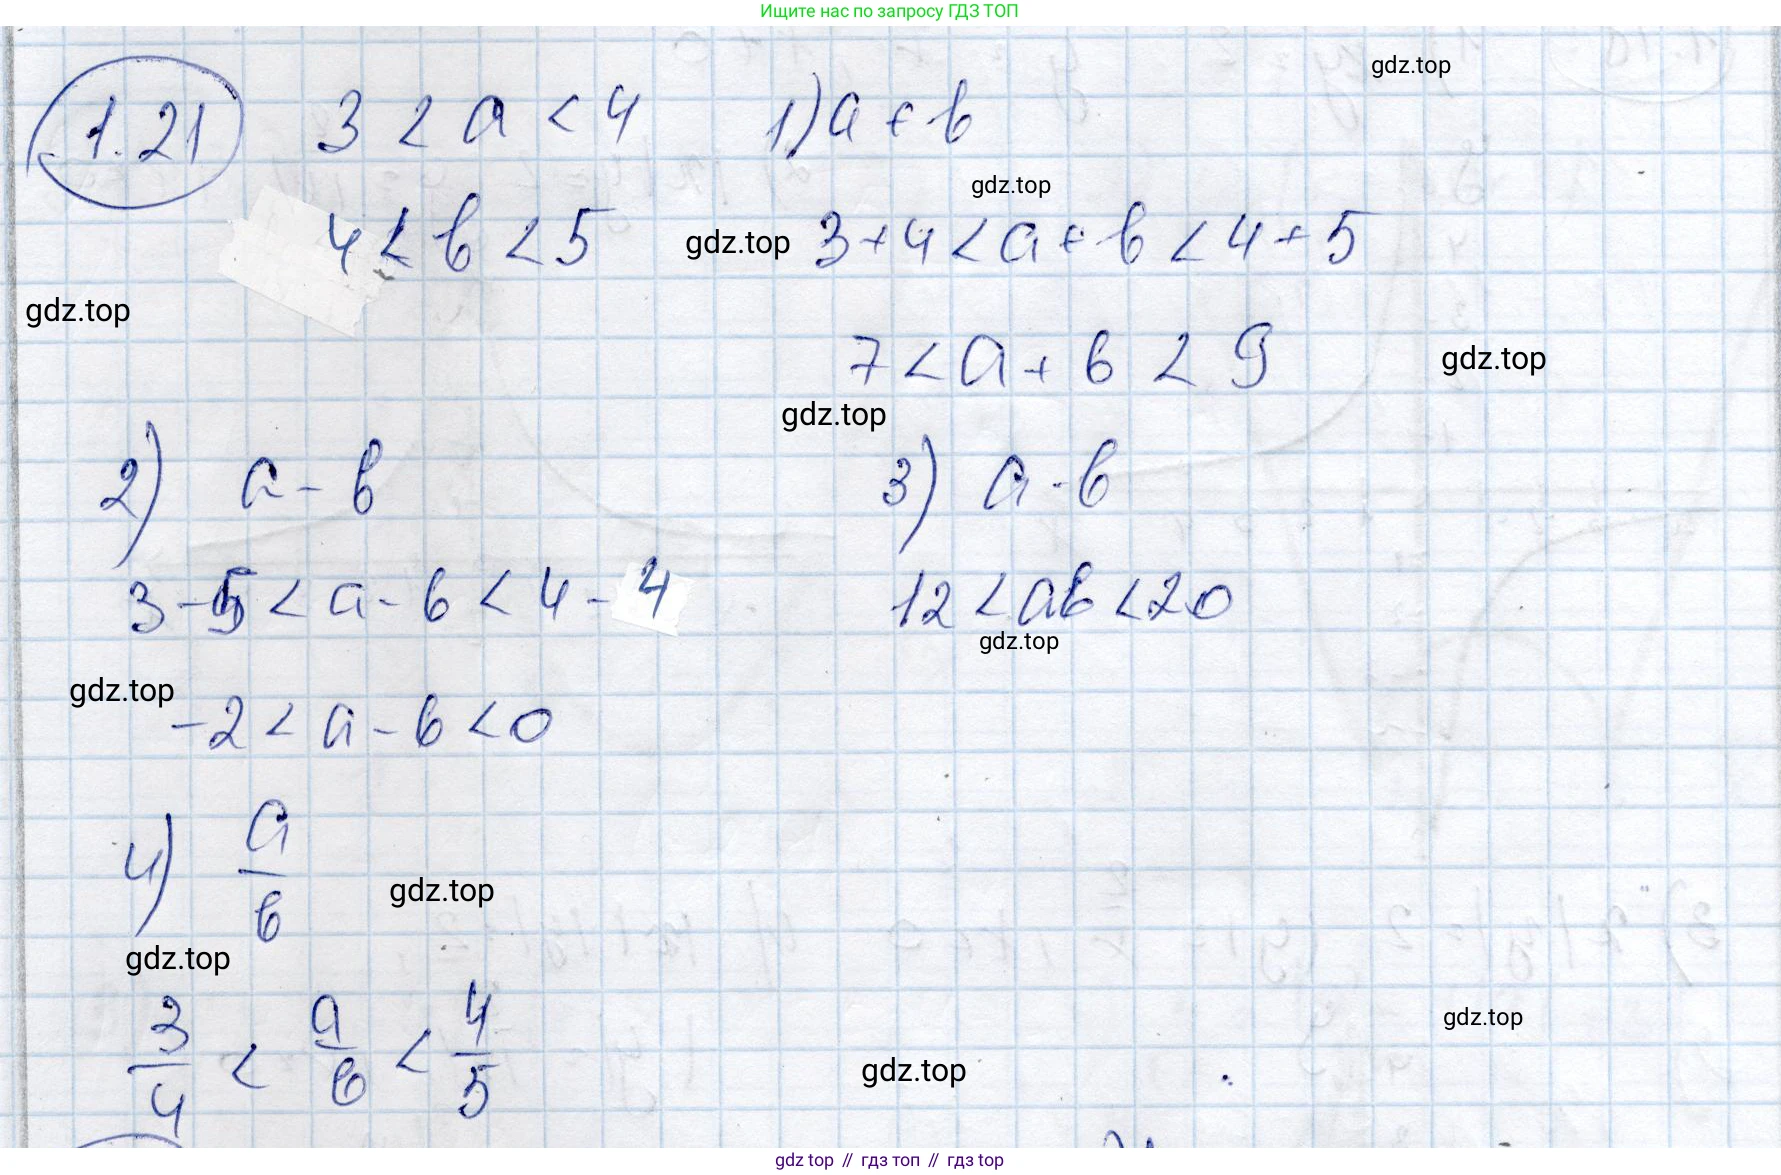 Ищите нас по запросу ГДЗ ТОП
gdz.top
1.21 3 < a < 4 1) a + b
gdz.top
4 < b < 5 gdz.top 3+4 < a + b < 4+5
gdz.top
7 < a + b < 9 gdz.top
gdz.top
2) a - b 3) a · b
3-5 < a - b < 4 - 4 12 < ab < 20
gdz.top
gdz.top
-2 < a - b < 0
4) a/b
gdz.top
gdz.top
3/4 < a/b < 4/5
gdz.top
gdz.top
gdz top // гдз топ // гдз top